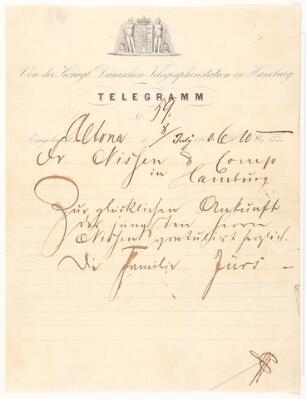 Von der Königl. Dänischen Telegraphenstation in Hamburg
TELEGRAMM
No 59.
Altona 8/ July 6 10
Dr. Nissen & Comp
in Hamburg
Zur glücklichen Ankunft
des jungsten Herrn
Nissen gratulirt herzlich.
Die Familie Jürs